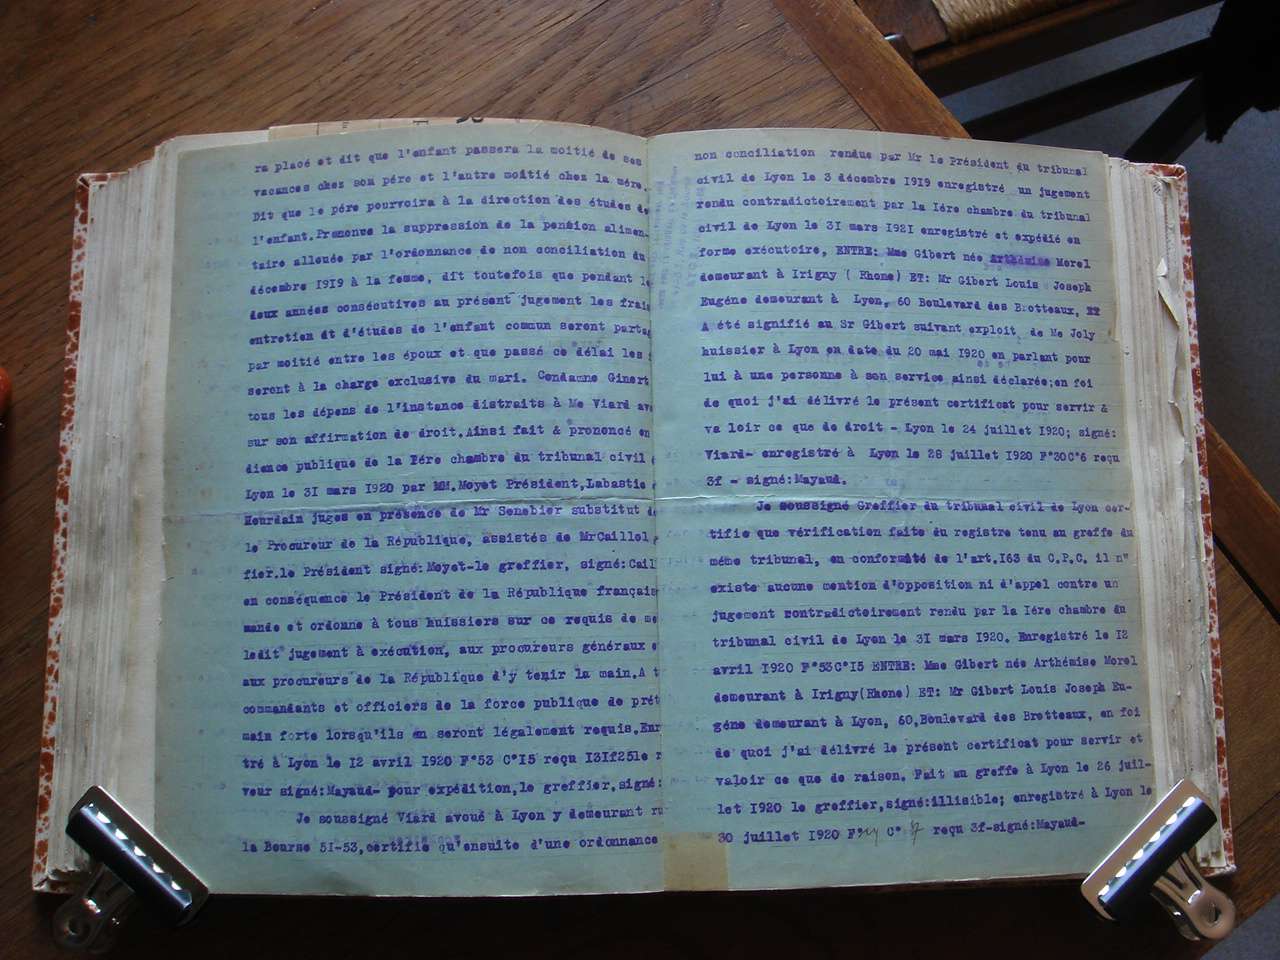 ra placé et dit que l'enfant passera la moitié de ses
vacances chez son pére et l'autre moitié chez la mére.
Dit que le pére pourvoira à la direction des études de
l'enfant.Prononce la suppression de la pension alimen-
taire allouée par l'ordonnance de non conciliation du
décembre I9I9 à la femme, dit toutefois que pendant le
deux années consécutives au présent jugement les frais
entretien dt d'études de l'enfant commun seront partag
par moitié entre les époux et que passé ce délai les
seront à la charge exclusive du mari. Condamne Ginert
tous les dépens de l'instance distraits à Me Viard av
sur son affirmation de droit.Ainsi fait & prononcé en
dience publique de la Iére chambre du tribunal civil
Lyon le 3I mars I920 par MM.Moyet Président,Labastie
Hourdain juges en présence de Mr Senebier substitut de
le Procureur de la République, assistés de MrCaillol
fier.le Président signé:Moyet-le greffier, signé:Cail
en conséquence le Président de la République français
mande et ordonne à tous huissiers sur ce requis de me
ledit jugement à exécution, aux procureurs généraux
aux procureurs de la République d'y tenir la main.A t
commandants et officiers de la force publique de prét
main forte lorsqu'ils en seront légalement requis.Enr
tré à Lyon le I2 avril I920 F°53 C°I5 reçu I3If25le r
veur signé:Mayaud- pour expédition,le greffier,signé:
Je soussigné Viard avoué à Lyon y demeurant ru
la Bourse 5I-53,certifie qu'ensuite d'une ordonnance
non conciliation rendue par Mr le Président du tribunal
civil de Lyon le 3 décembre I9I9 enregistré un jugement
rendu contradictoirement par la Iére chambre du tribunal
civil de Lyon le 3I mars I92I enregistré et expédié en
forme exécutoire, ENTRE: Mme Gibert née Arthémise Morel
demeurant à Irigny ( Rhone) ET: Mr Gibert Louis Joseph
Eugéne demeurant à Lyon, 60 Boulevard des Brotteaux,
A été signifié au Sr Gibert suivant exploit de Me Joly
huissier à Lyon en date du 20 mai I920 en parlant pour
lui à une personne à son service ainsi déclarée;en foi
de quoi j'ai délivré le présent certificat pour servir &
va loir ce que de droit - Lyon le 24 juillet I920; signé:
Viard- enregistré à Lyon le 28 juillet I920 F°30C°6 reçu
3f - signé:Mayaud.
Je soussigné Greffier du tribunal civil de Lyon cer-
tifie que vérification faite du registre tenu au greffe du
méme tribunal, en conformité de l'art.I63 du C.P.C. il n"
existe aucune mention d'opposition ni d'appel contre un
jugement contradictoirement rendu par la Iére chambre du
tribunal civil de Lyon le 3I mars I920. Enregistré le I2
avril I920 F°53C°I5 ENTRE: Mme Gibert née Arthémise Morel
demeurant à Irigny(Rhone) ET: Mr Gibert Louis Joseph Eu-
géne demeurant à Lyon, 60,Boulevard des Brotteaux, en foi
de quoi j'ai délivré le présent certificat pour servir et
valoir ce que de raison. Fait au greffe à Lyon le 26 juil-
let I920 le greffier,signé:illisible; enregistré à Lyon le
30 juillet I920 F° C° 7 reçu 3f-signé:Mayaud-